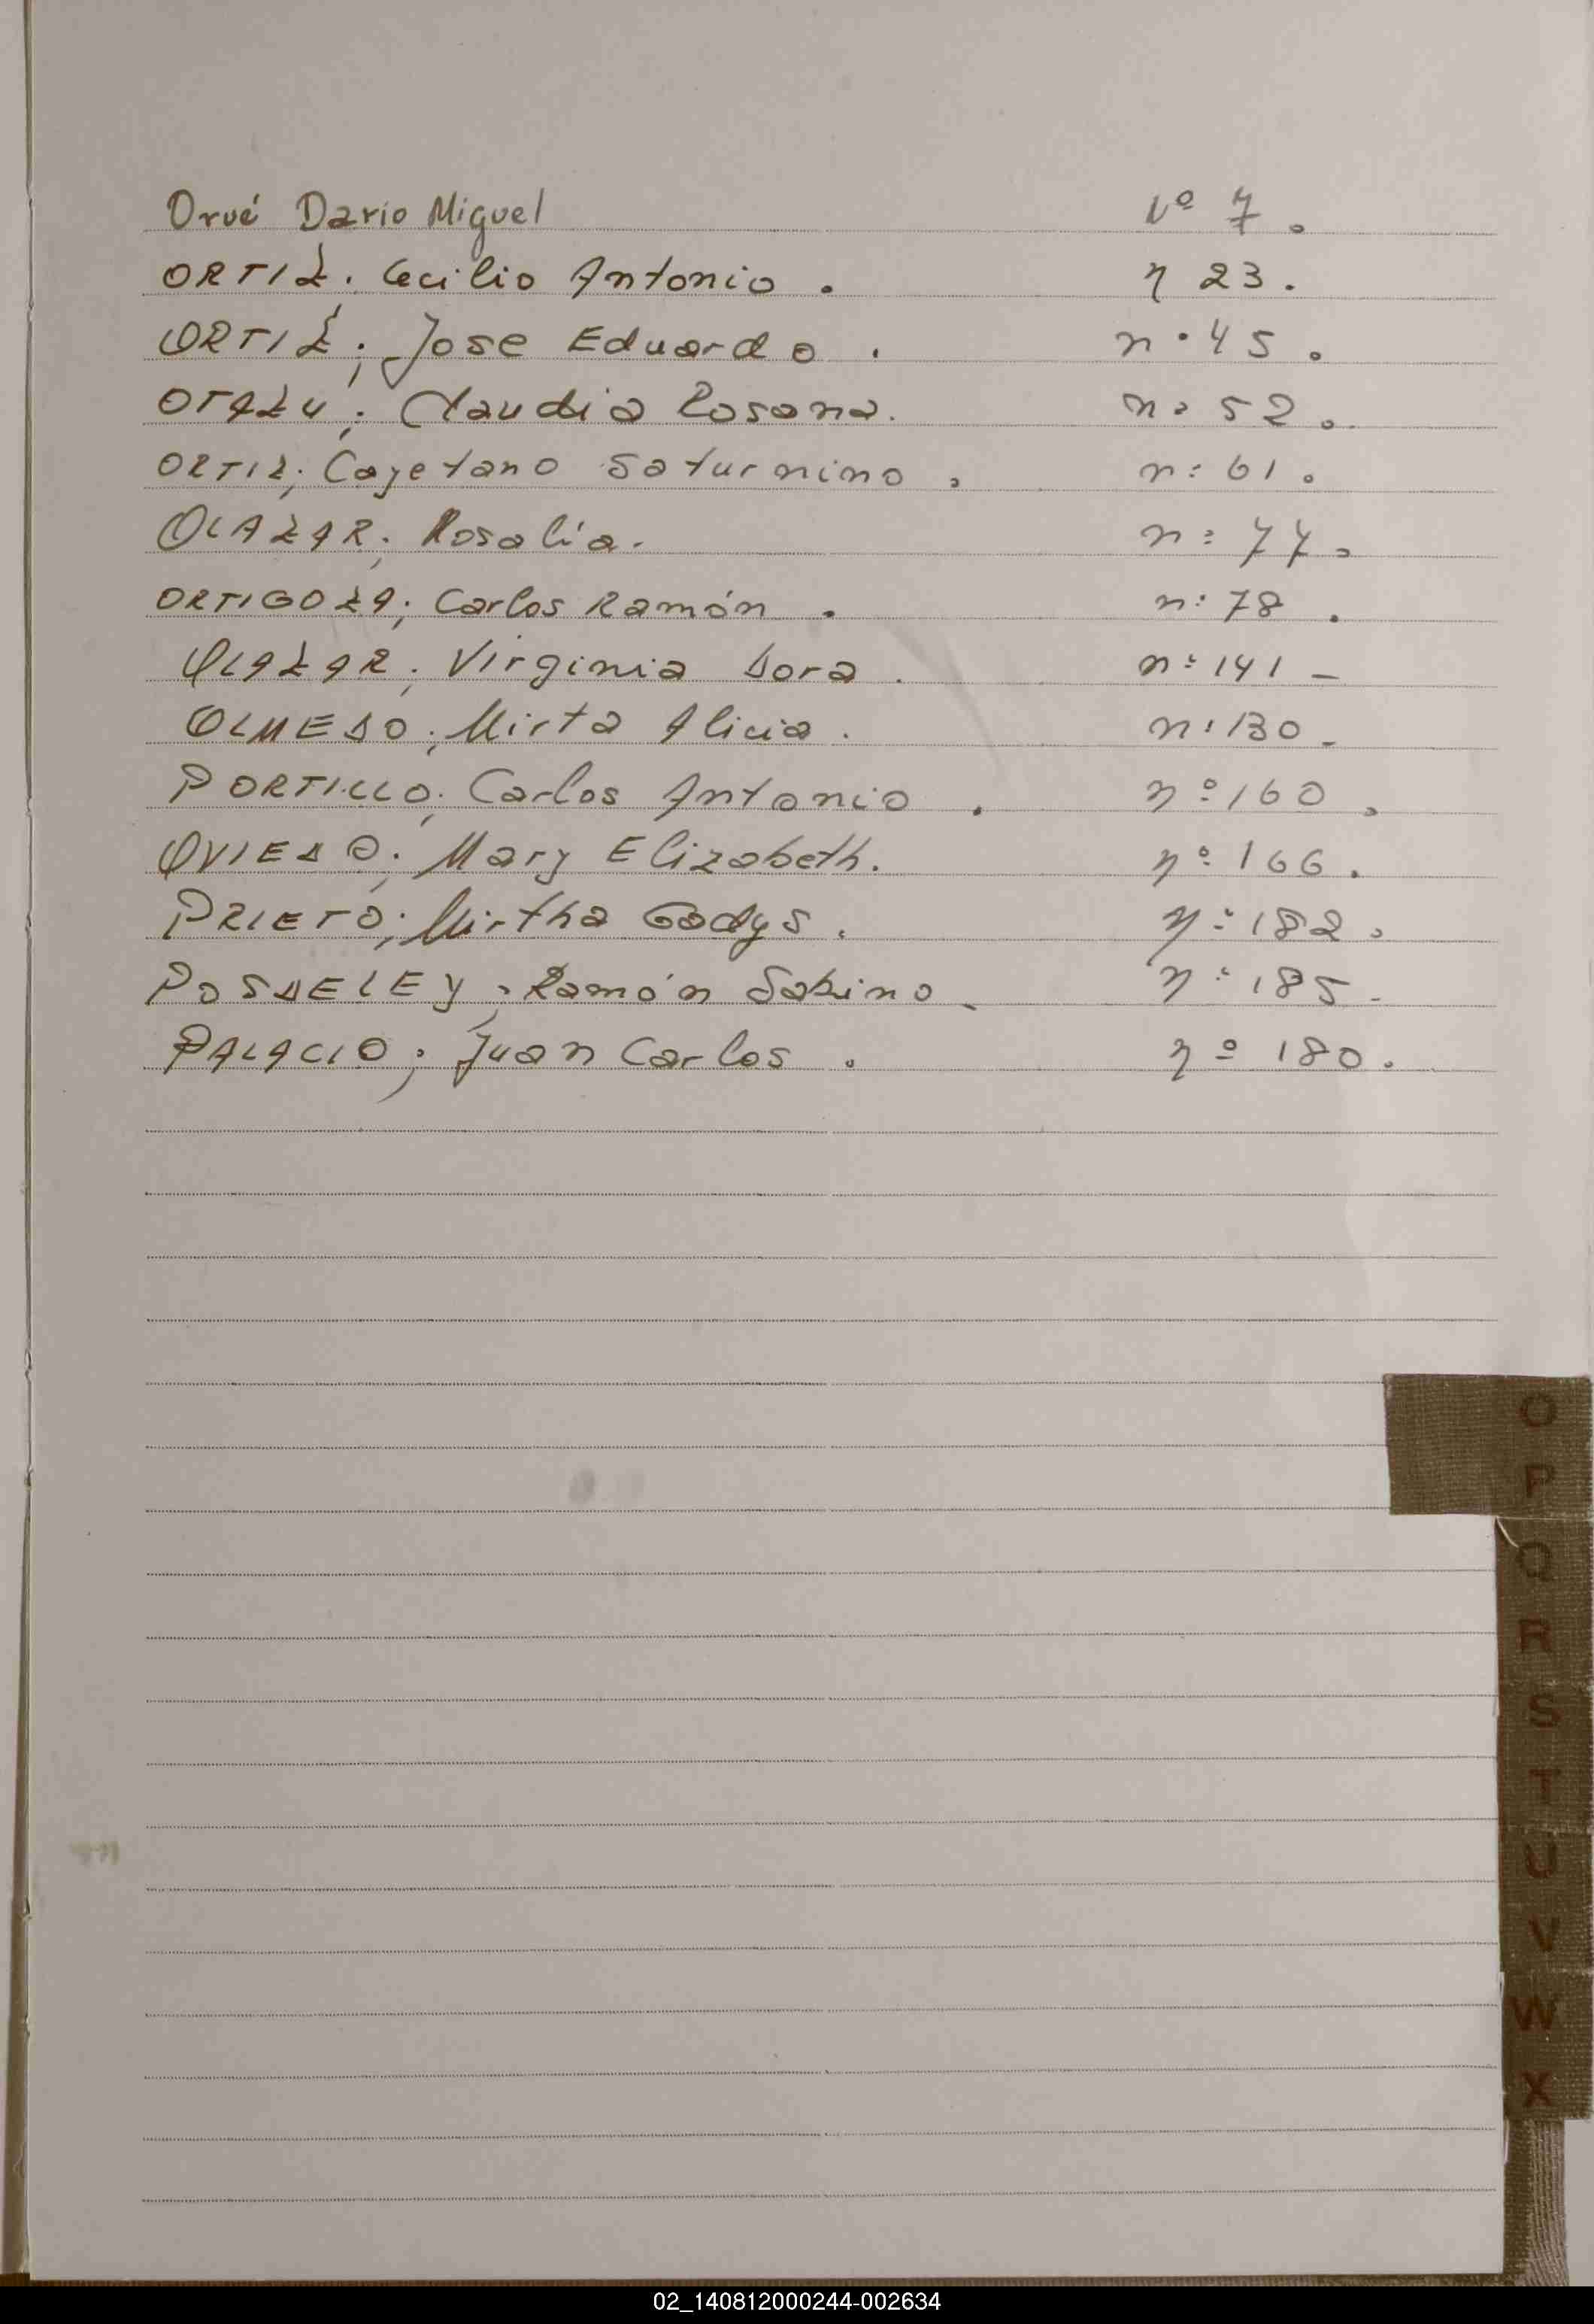 Orué Dario Miguel Nº 7.
ORTIZ. Cecilio Antonio. n 23.
ORTIZ; Jose Eduardo. n° 45.
OTAZU; Claudia Rosana. n° 52.
ORTIZ; Cayetano Saturnino. n° 61.
OLAZAR; Rosalía. n° 77.
ORTIGOZA; Carlos Ramón. n° 78.
OLAZAR; Virginia Dora. n° 141-
OLMEDO; Mirta Alicia. n° 130-
PORTILLO; Carlos Antonio. nº 160.
OVIEDO; Mary Elizabeth. nº 166.
PRIETO; Mirtha Gadys. n° 182.
POSDELEY; Ramón Sabino- n° 185-
PALACIO; Juan Carlos. nº 180.
O
P
Q
R
S
T
U
V
W
X
02_140812000244-002634